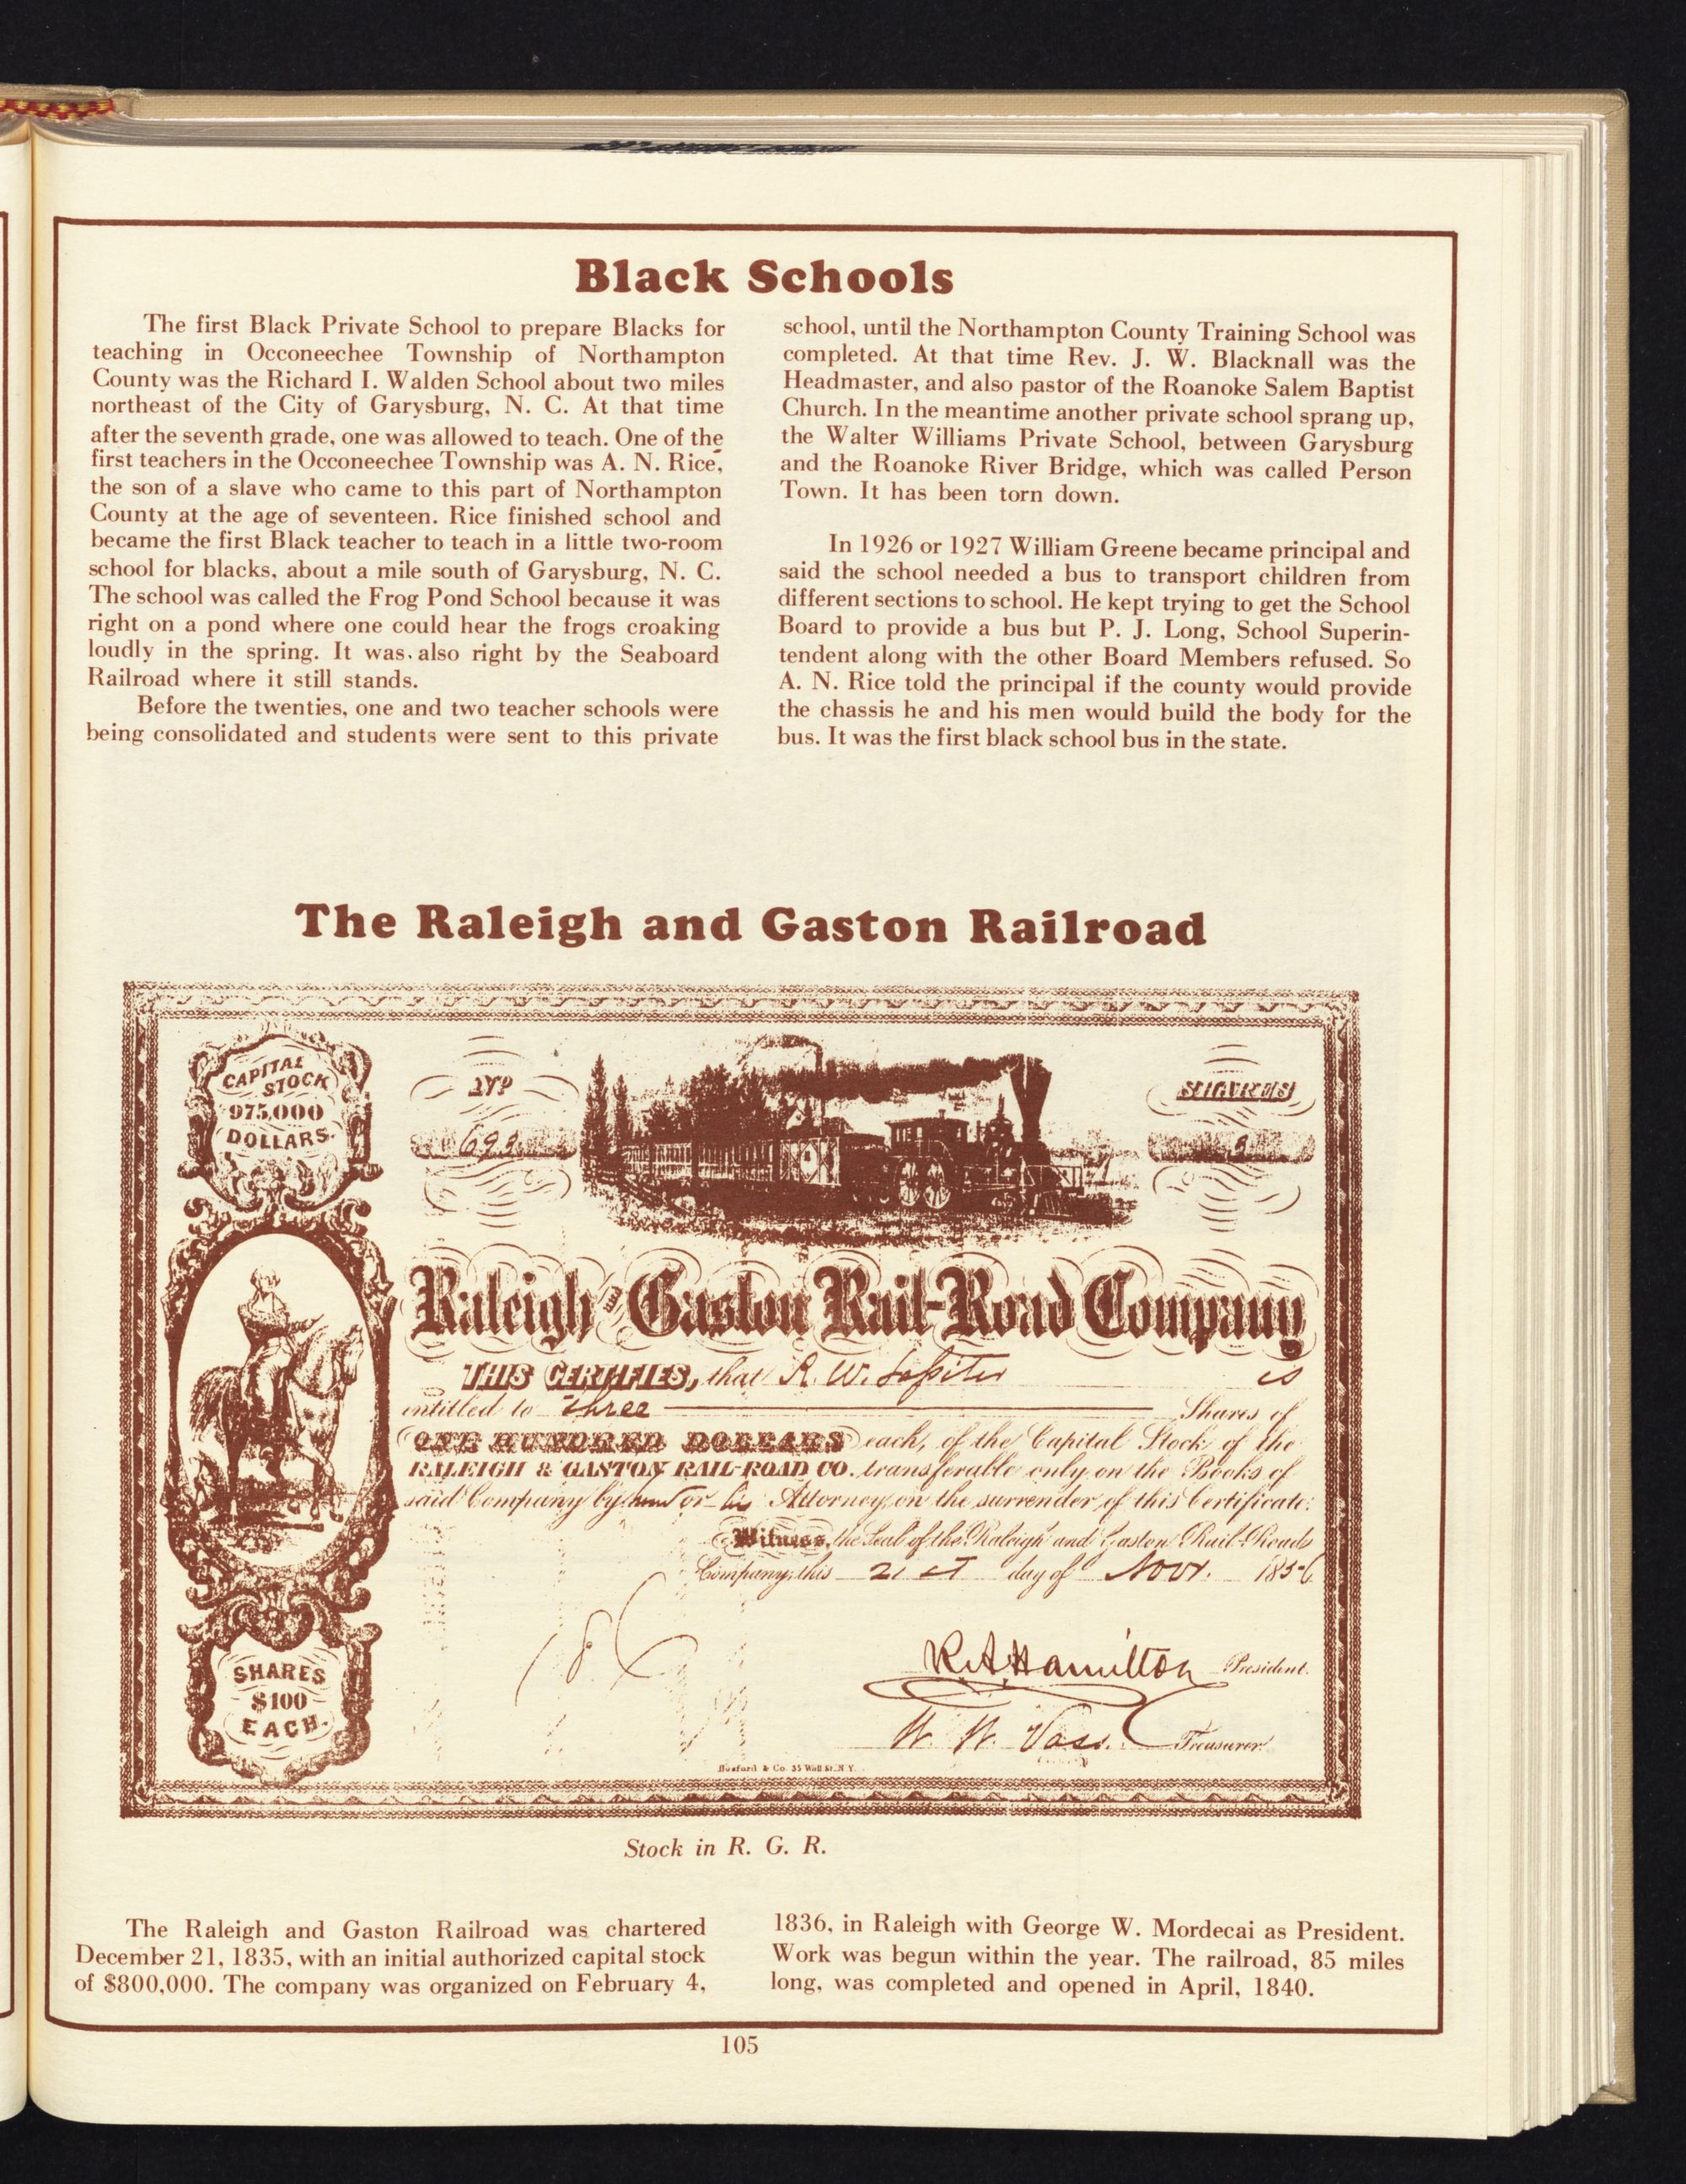 Black Schools
The first Black Private School to prepare Blacks for
teaching in Occoneechee Township of Northampton
County was the Richard I. Walden School about two miles
northeast of the City of Garysburg, N. C. At that time
after the seventh grade, one was allowed to teach. One of the
first teachers in the Occoneechee Township was A. N. Rice,
the son of a slave who came to this part of Northampton
County at the age of seventeen. Rice finished school and
became the first Black teacher to teach in a little two-room
school for blacks, about a mile south of Garysburg, N. C.
The school was called the Frog Pond School because it was
right on a pond where one could hear the frogs croaking
loudly in the spring. It was also right by the Seaboard
Railroad where it still stands.
Before the twenties, one and two teacher schools were
being consolidated and students were sent to this private
school, until the Northampton County Training School was
completed. At that time Rev. J. W. Blacknall was the
Headmaster, and also pastor of the Roanoke Salem Baptist
Church. In the meantime another private school sprang up,
the Walter Williams Private School, between Garysburg
and the Roanoke River Bridge, which was called Person
Town. It has been torn down.
In 1926 or 1927 William Greene became principal and
said the school needed a bus to transport children from
different sections to school. He kept trying to get the School
Board to provide a bus but P. J. Long, School Superin-
tendent along with the other Board Members refused. So
A. N. Rice told the principal if the county would provide
the chassis he and his men would build the body for the
bus. It was the first black school bus in the state.
The Raleigh and Gaston Railroad
CAPITAL
STOCK
975,000
DOLLARS.
693
3
Raleigh and Gaston Rail-Road Company
THIS CERTIFIES, that R. W. Lassiter is
entitled to three Shares of
ONE HUNDRED DOLLARS each, of the Capital Stock of the
RALEIGH & GASTON RAIL-ROAD CO. transferable only on the Books of
said Company by him or his Attorney on the surrender of this Certificate.
Witness, the Seal of the Raleigh and Gaston Rail-Road
Company, this 21st day of Novr. 1856
SHARES
$100
EACH.
R A Hamilton President.
W. W. Vass. Treasurer.
Hosford & Co. 35 Wall St. N.Y.
Stock in R. G. R.
The Raleigh and Gaston Railroad was chartered
December 21, 1835, with an initial authorized capital stock
of $800,000. The company was organized on February 4,
1836, in Raleigh with George W. Mordecai as President.
Work was begun within the year. The railroad, 85 miles
long, was completed and opened in April, 1840.
105